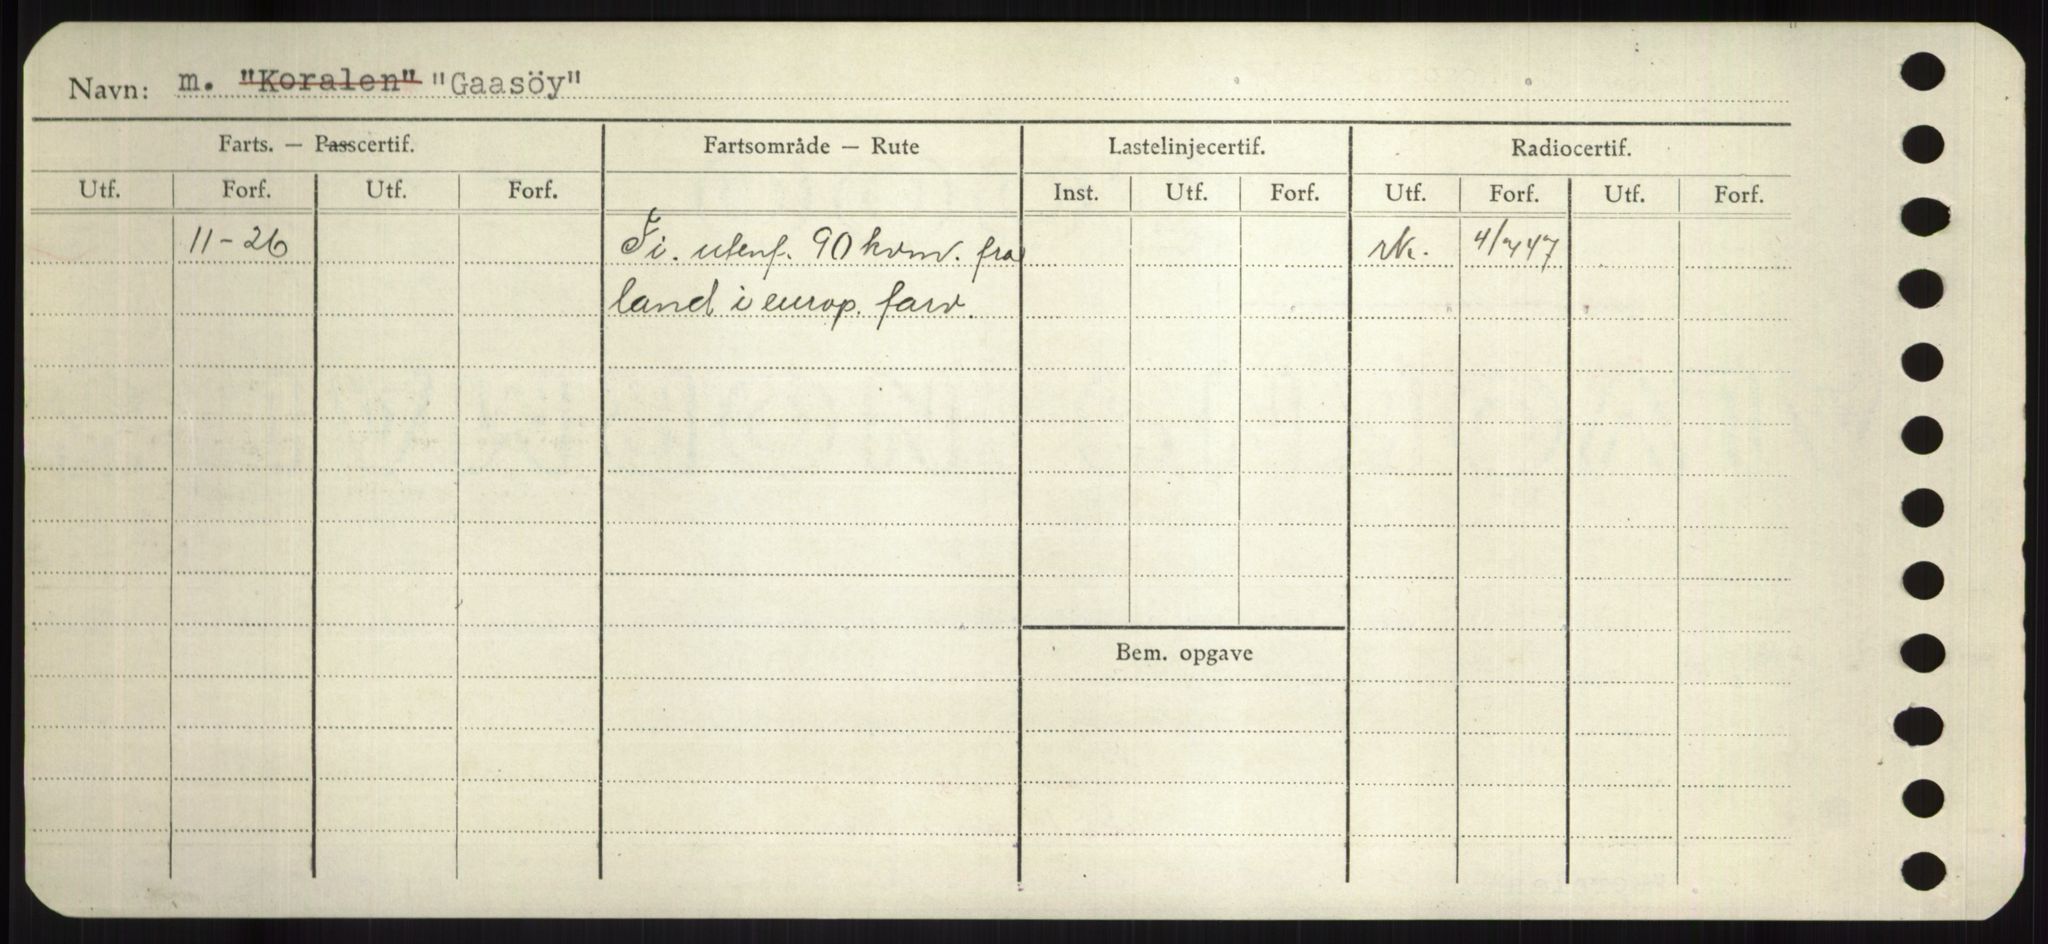 Navn: m. "Koralen" "Gaasöy"
Farts. — Passcertif. Fartsområde — Rute Lastelinjecertif. Radiocertif.
Utf. Forf. Utf. Forf. Inst. Utf. Forf. Utf. Forf. Utf. Forf.
11-26 Fi. utenf. 90 kvm. fra rk. 4/7 47
land i europ. farv.
Bem. opgave